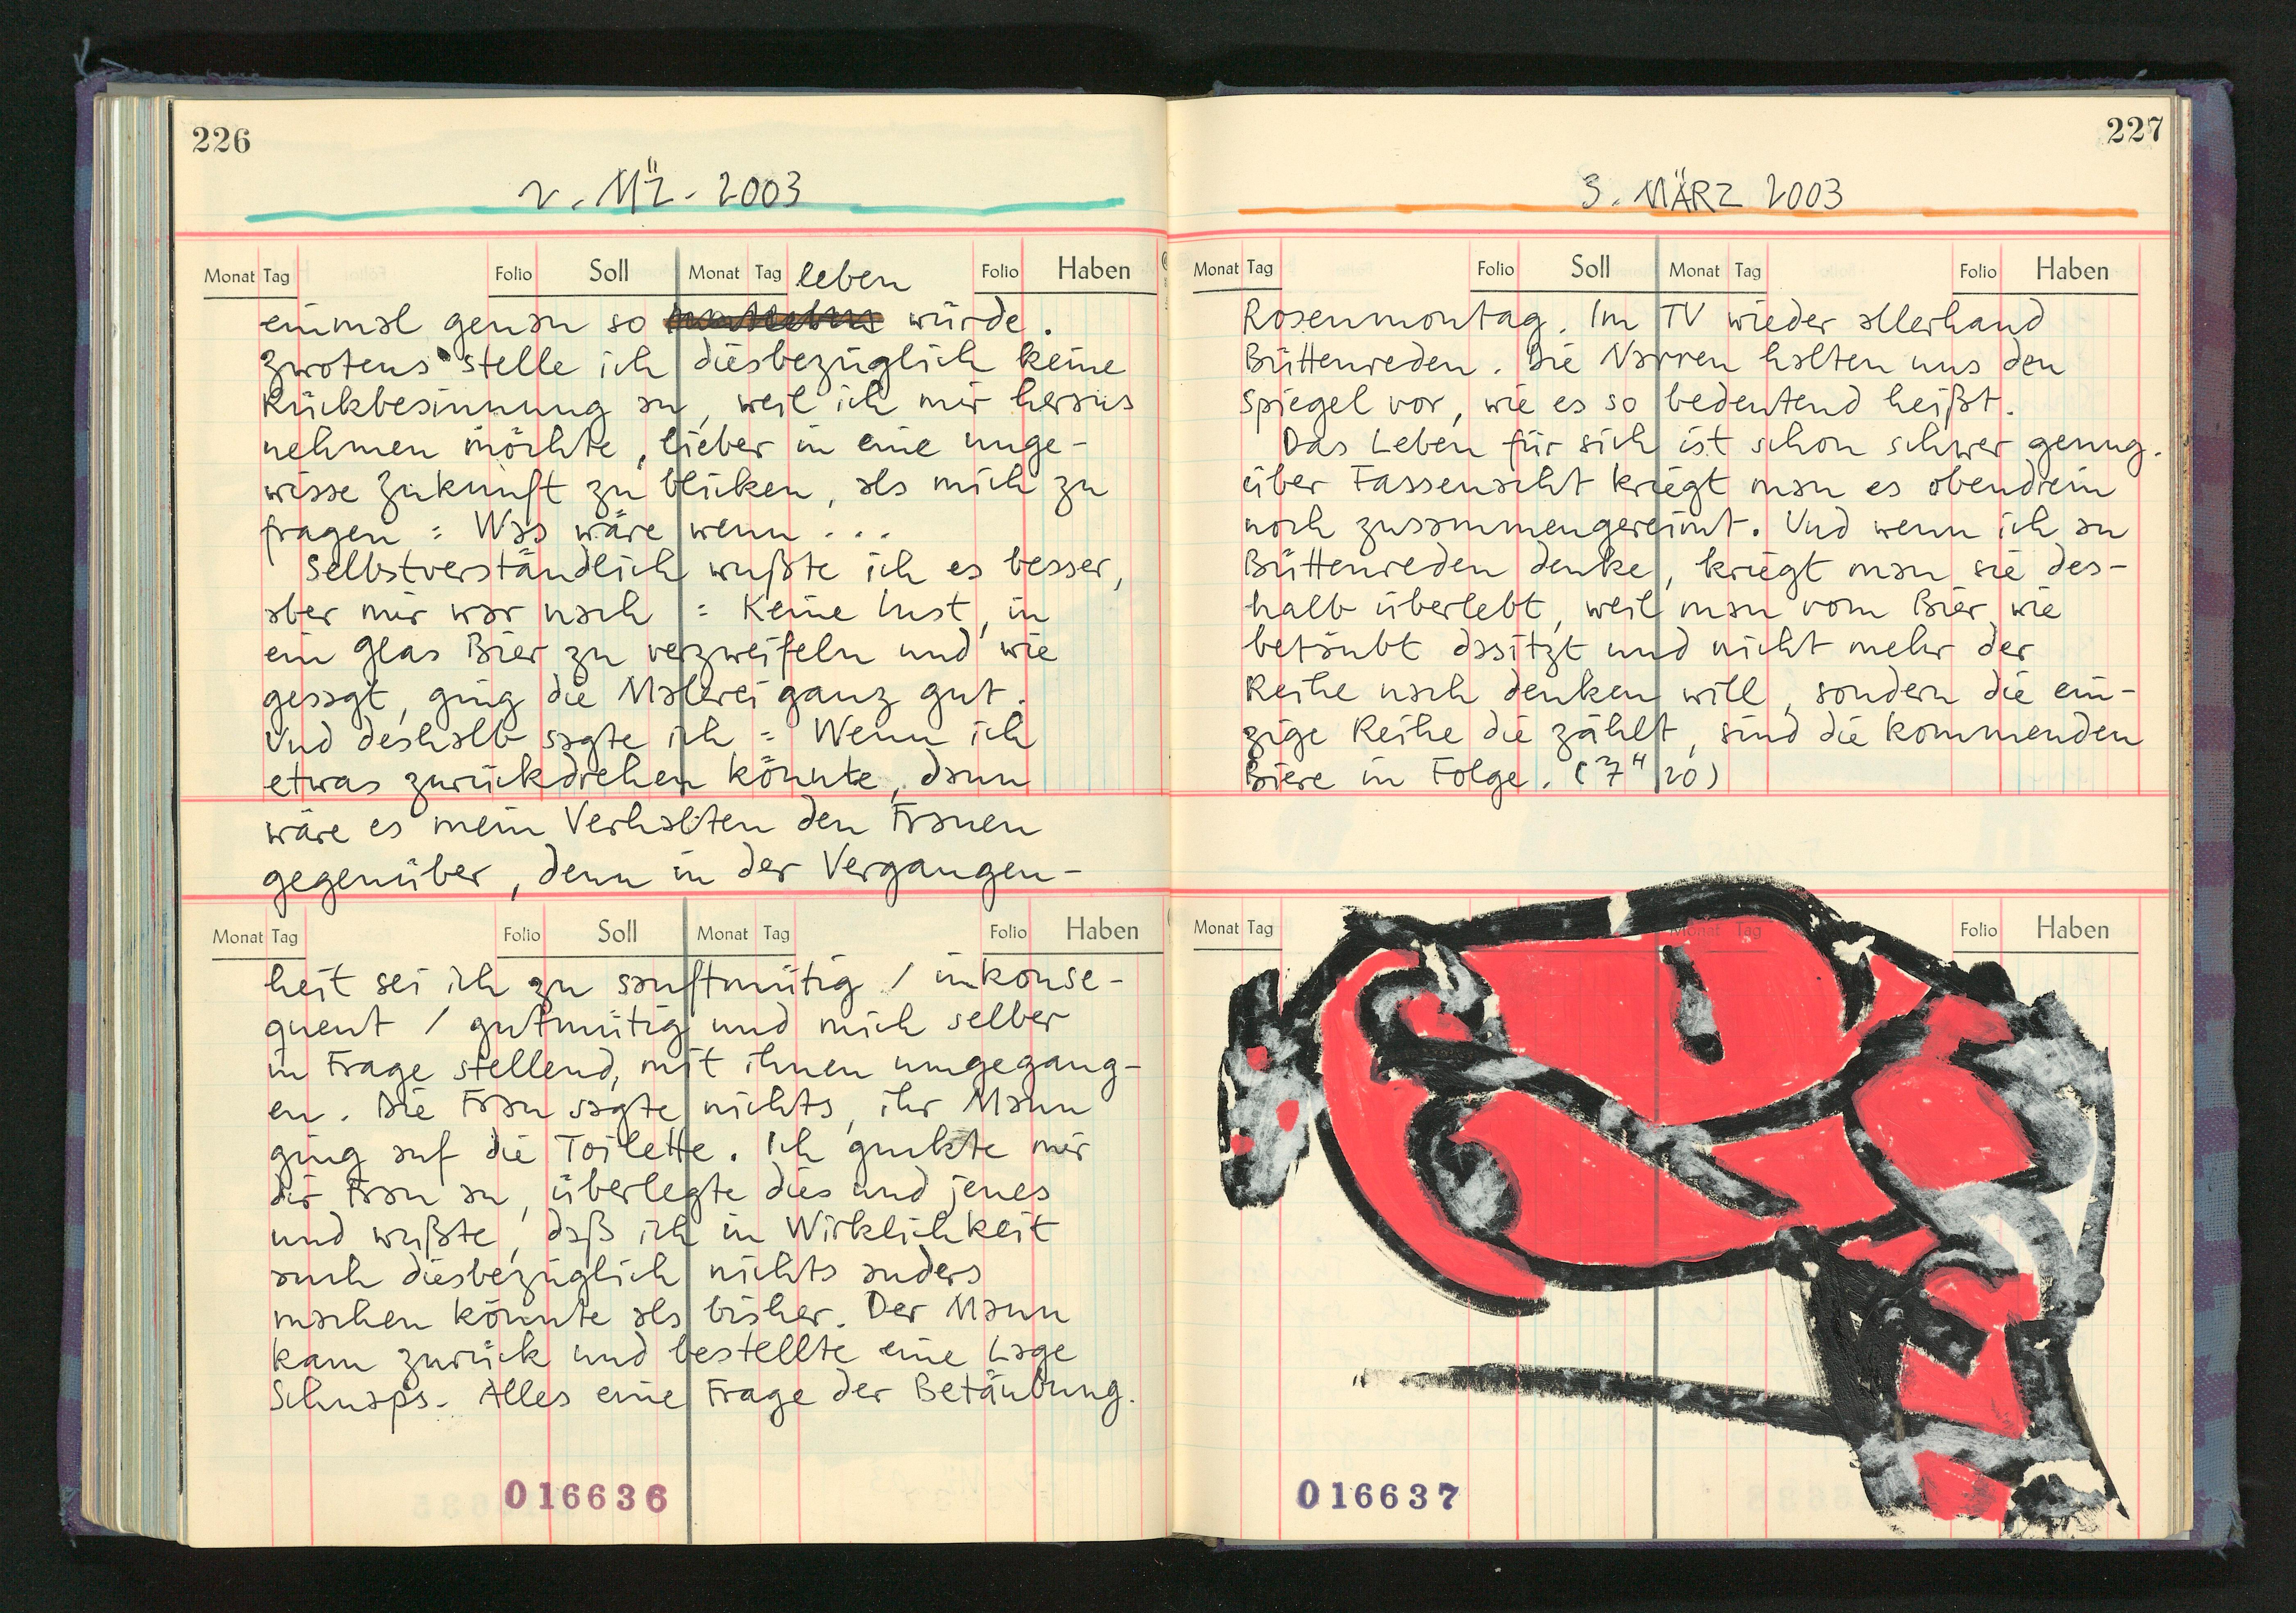 226
2. MÄZ. 2003
Monat Tag Folio Soll Monat Tag Folio Haben
leben
einmal genau so würde.
Zwotens stelle ich diesbezüglich keine
Rückbesinnung an, weil ich mir heraus
nehmen möchte, lieber in eine unge-
wisse Zukunft zu blicken, als mich zu
fragen: Was wäre wenn...
Selbstverständlich wußte ich es besser,
aber mir war nach: Keine Lust, in
ein Glas Bier zu verzweifeln und wie
gesagt, ging die Malerei ganz gut.
Und deshalb sagte ich: Wenn ich
etwas zurückdrehen könnte, dann
wäre es mein Verhalten den Frauen
gegenüber, denn in der Vergangen-
Monat Tag Folio Soll Monat Tag Folio Haben
heit sei ich zu sanftmütig / inkonse-
quent / gutmütig und mich selber
in Frage stellend, mit ihnen umgegang-
en. Die Frau sagte nichts, ihr Mann
ging auf die Toilette. Ich guckte mir
die Frau an, überlegte dies und jenes
und wußte, daß ich in Wirklichkeit
auch diesbezüglich nichts anders
machen könnte als bisher. Der Mann
kam zurück und bestellte eine Lage
Schnaps. Alles eine Frage der Betäubung.
016636
227
3. MÄRZ 2003
Monat Tag Folio Soll Monat Tag Folio Haben
Rosenmontag. Im TV wieder allerhand
Büttenreden. Die Narren halten uns den
Spiegel vor, wie es so bedeutend heißt.
Das Leben für sich ist schon schwer genug.
über Fassenacht kriegt man es obendrein
noch zusammengereimt. Und wenn ich an
Büttenreden denke, kriegt man sie des-
halb überlebt, weil man vom Bier wie
betäubt dasitzt und nicht mehr der
Reihe nach denken will, sondern die ein-
zige Reihe die zählt, sind die kommenden
Biere in Folge. (7" 20)
Monat Tag Monat Tag Folio Haben
016637